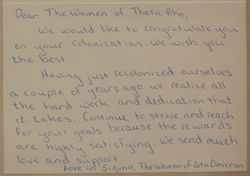 Dear The Women of Theta Rho,
We would like to congratulate you
on your colonization. We wish you
the best.
Having just recolonized ourselves
a couple of years ago we realize all
the hard work and dedication that
it takes. Continue to strive and reach
for your goals because the rewards
are highly satisfying. We send much
love and support.
Love in Sigma, The Women of Zeta Omicron